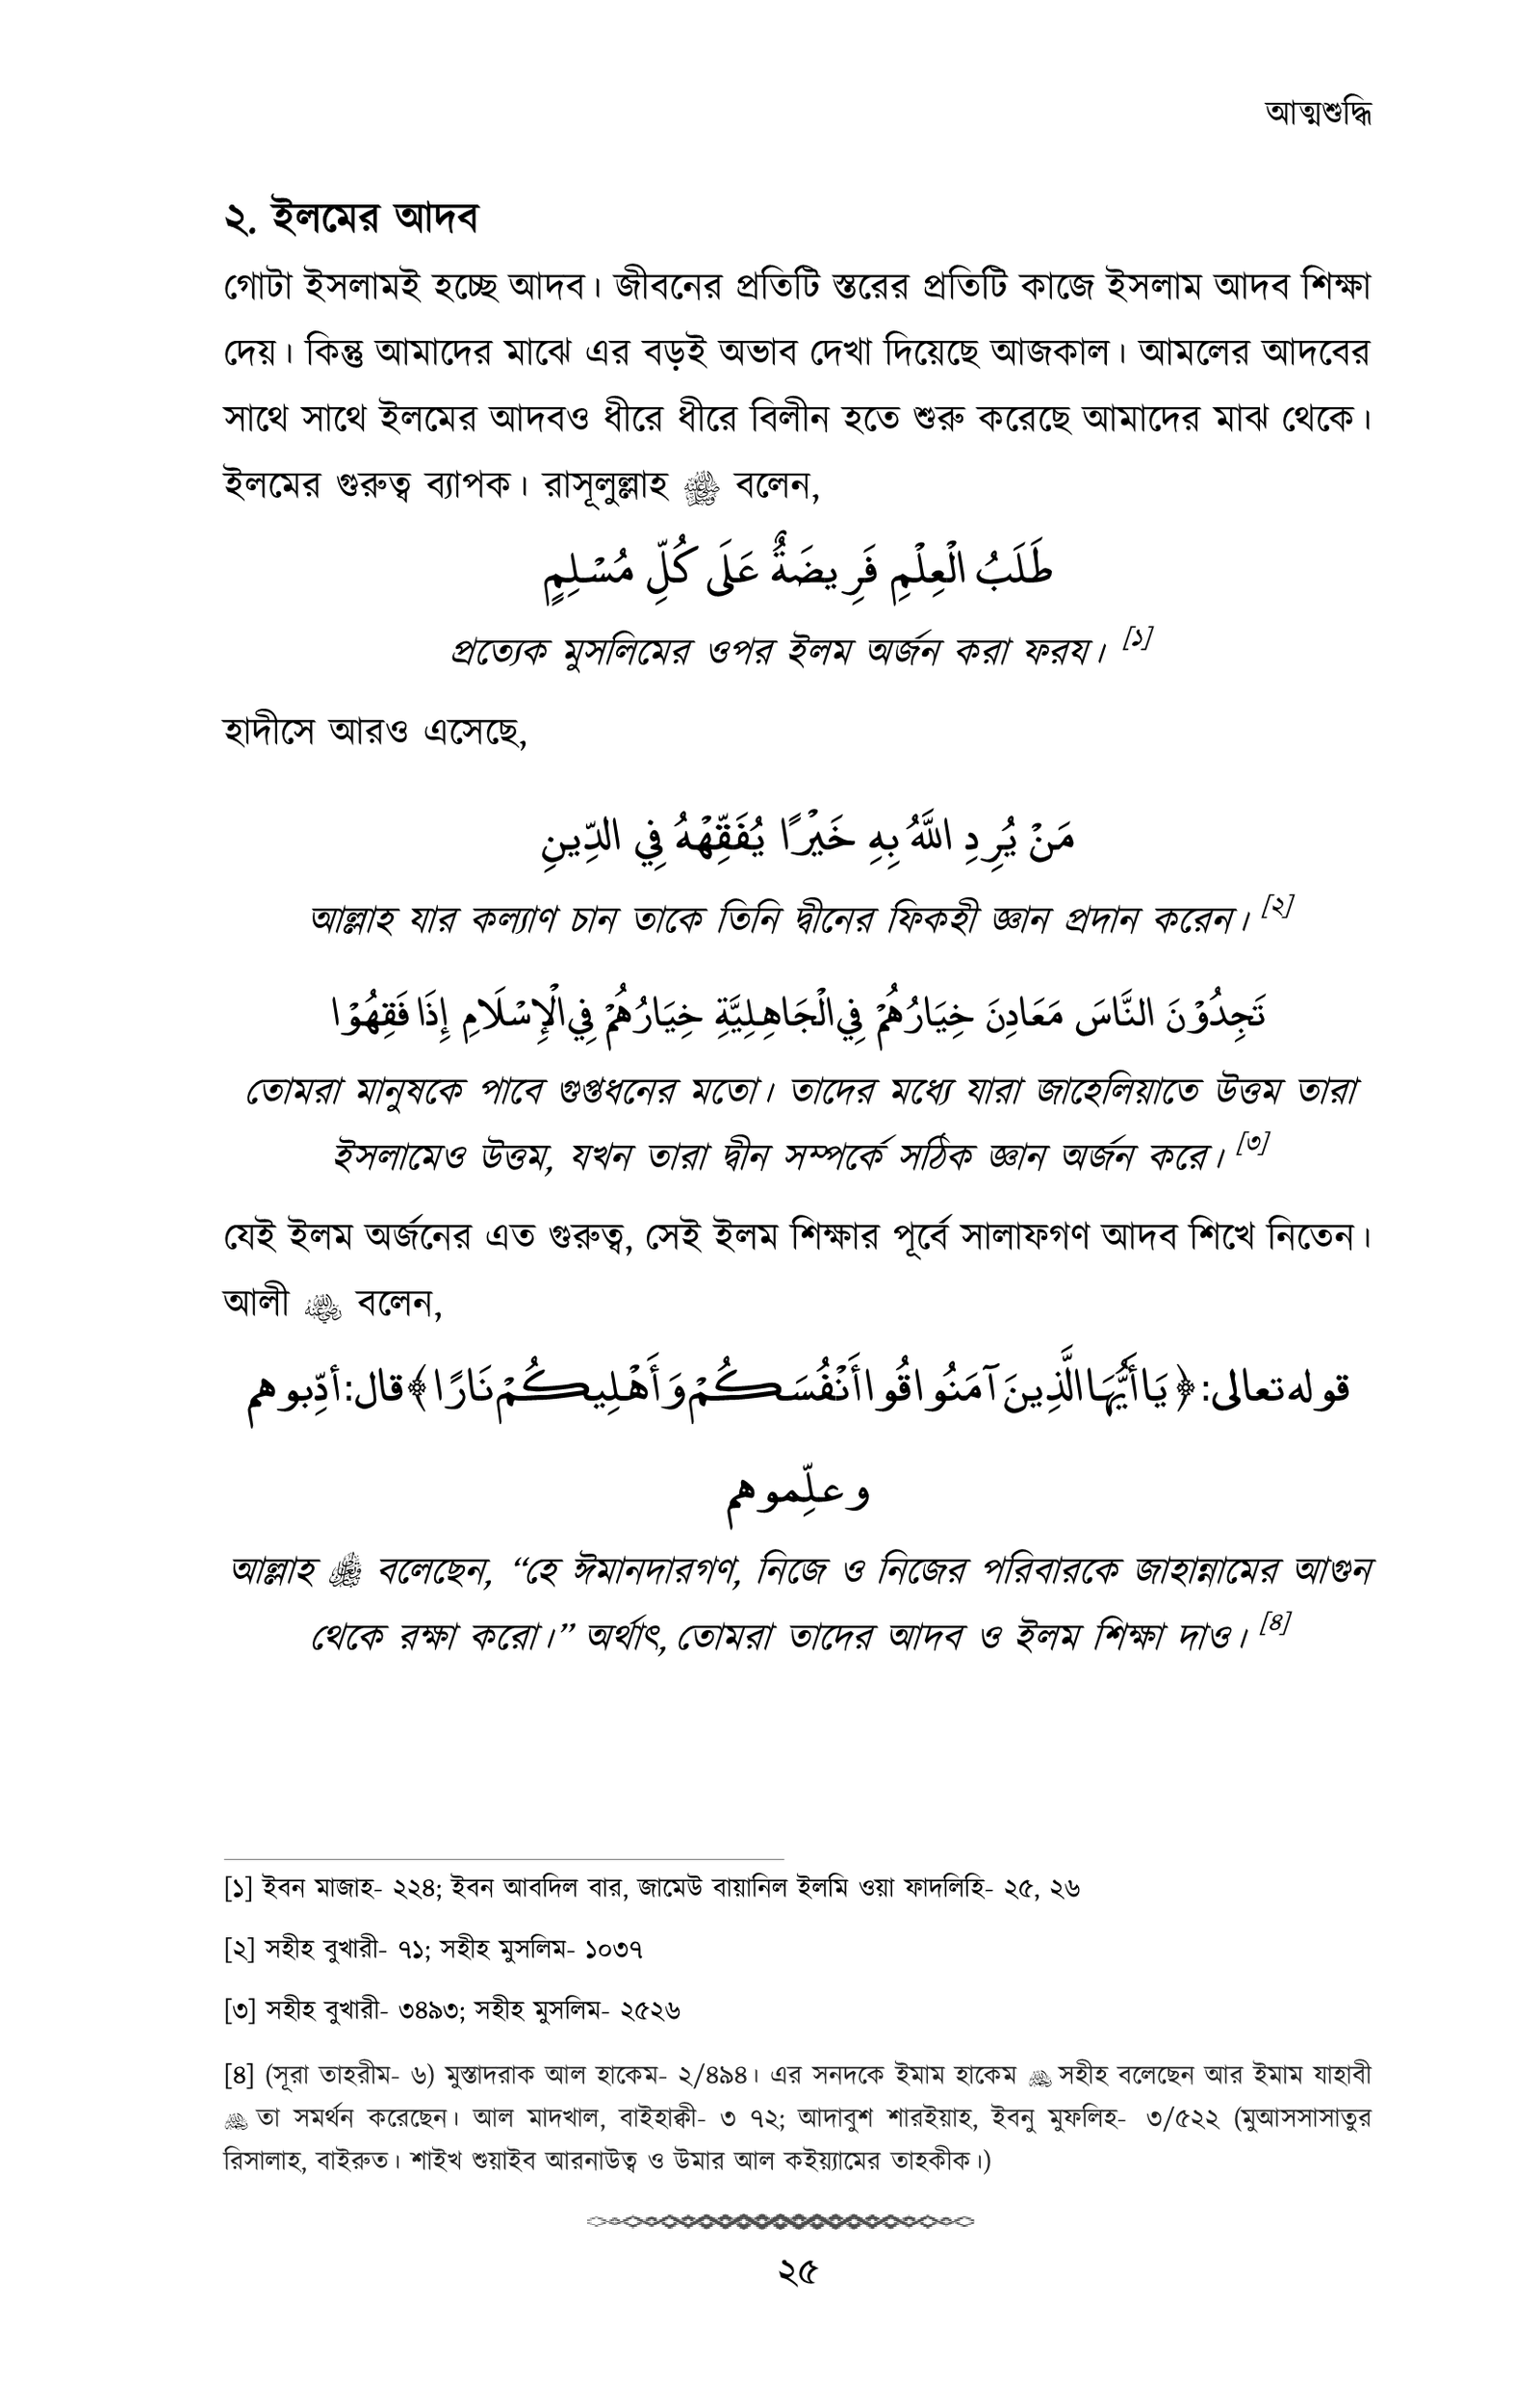 আত্মশুদ্ধি
২. ইলমের আদব
গোটা ইসলামই হচ্ছে আদব। জীবনের প্রতিটি স্তরের প্রতিটি কাজে ইসলাম আদব শিক্ষা
দেয়। কিন্তু আমাদের মাঝে এর বড়ই অভাব দেখা দিয়েছে আজকাল। আমলের আদবের
সাথে সাথে ইলমের আদবও ধীরে ধীরে বিলীন হতে শুরু করেছে আমাদের মাঝ থেকে।
ইলমের গুরুত্ব ব্যাপক। রাসূলুল্লাহ ﷺ বলেন,
طَلَبُ الْعِلْمِ فَرِيضَةٌ عَلَى كُلِّ مُسْلِمٍ
প্রত্যেক মুসলিমের ওপর ইলম অর্জন করা ফরয। [১]
হাদীসে আরও এসেছে,
مَنْ يُرِدِ اللَّهُ بِهِ خَيْرًا يُفَقِّهْهُ فِي الدِّينِ
আল্লাহ যার কল্যাণ চান তাকে তিনি দ্বীনের ফিকহী জ্ঞান প্রদান করেন। [২]
تَجِدُوْنَ النَّاسَ مَعَادِنَ خِيَارُهُمْ فِي الْجَاهِلِيَّةِ خِيَارُهُمْ فِي الْإِسْلَامِ إِذَا فَقِهُوْا
তোমরা মানুষকে পাবে গুপ্তধনের মতো। তাদের মধ্যে যারা জাহেলিয়াতে উত্তম তারা
ইসলামেও উত্তম, যখন তারা দ্বীন সম্পর্কে সঠিক জ্ঞান অর্জন করে। [৩]
যেই ইলম অর্জনের এত গুরুত্ব, সেই ইলম শিক্ষার পূর্বে সালাফগণ আদব শিখে নিতেন।
আলী ؓ বলেন,
قوله تعالى: ﴿يَا أَيُّهَا الَّذِينَ آمَنُوا قُوا أَنْفُسَكُمْ وَأَهْلِيكُمْ نَارًا﴾ قال: أدِّبوهم
وعلِّموهم
আল্লাহ ﷻ বলেছেন, “হে ঈমানদারগণ, নিজে ও নিজের পরিবারকে জাহান্নামের আগুন
থেকে রক্ষা করো।” অর্থাৎ, তোমরা তাদের আদব ও ইলম শিক্ষা দাও। [৪]
[১] ইবন মাজাহ- ২২৪; ইবন আবদিল বার, জামেউ বায়ানিল ইলমি ওয়া ফাদলিহি- ২৫, ২৬
[২] সহীহ বুখারী- ৭১; সহীহ মুসলিম- ১০৩৭
[৩] সহীহ বুখারী- ৩৪৯৩; সহীহ মুসলিম- ২৫২৬
[৪] (সূরা তাহরীম- ৬) মুস্তাদরাক আল হাকেম- ২/৪৯৪। এর সনদকে ইমাম হাকেম সহীহ বলেছেন আর ইমাম যাহাবী
তা সমর্থন করেছেন। আল মাদখাল, বাইহাক্বী- ৩ ৭২; আদাবুশ শারইয়াহ, ইবনু মুফলিহ- ৩/৫২২ (মুআসসাসাতুর
রিসালাহ, বাইরুত। শাইখ শুয়াইব আরনাউত্ব ও উমার আল কইয়্যামের তাহকীক।)
২৫